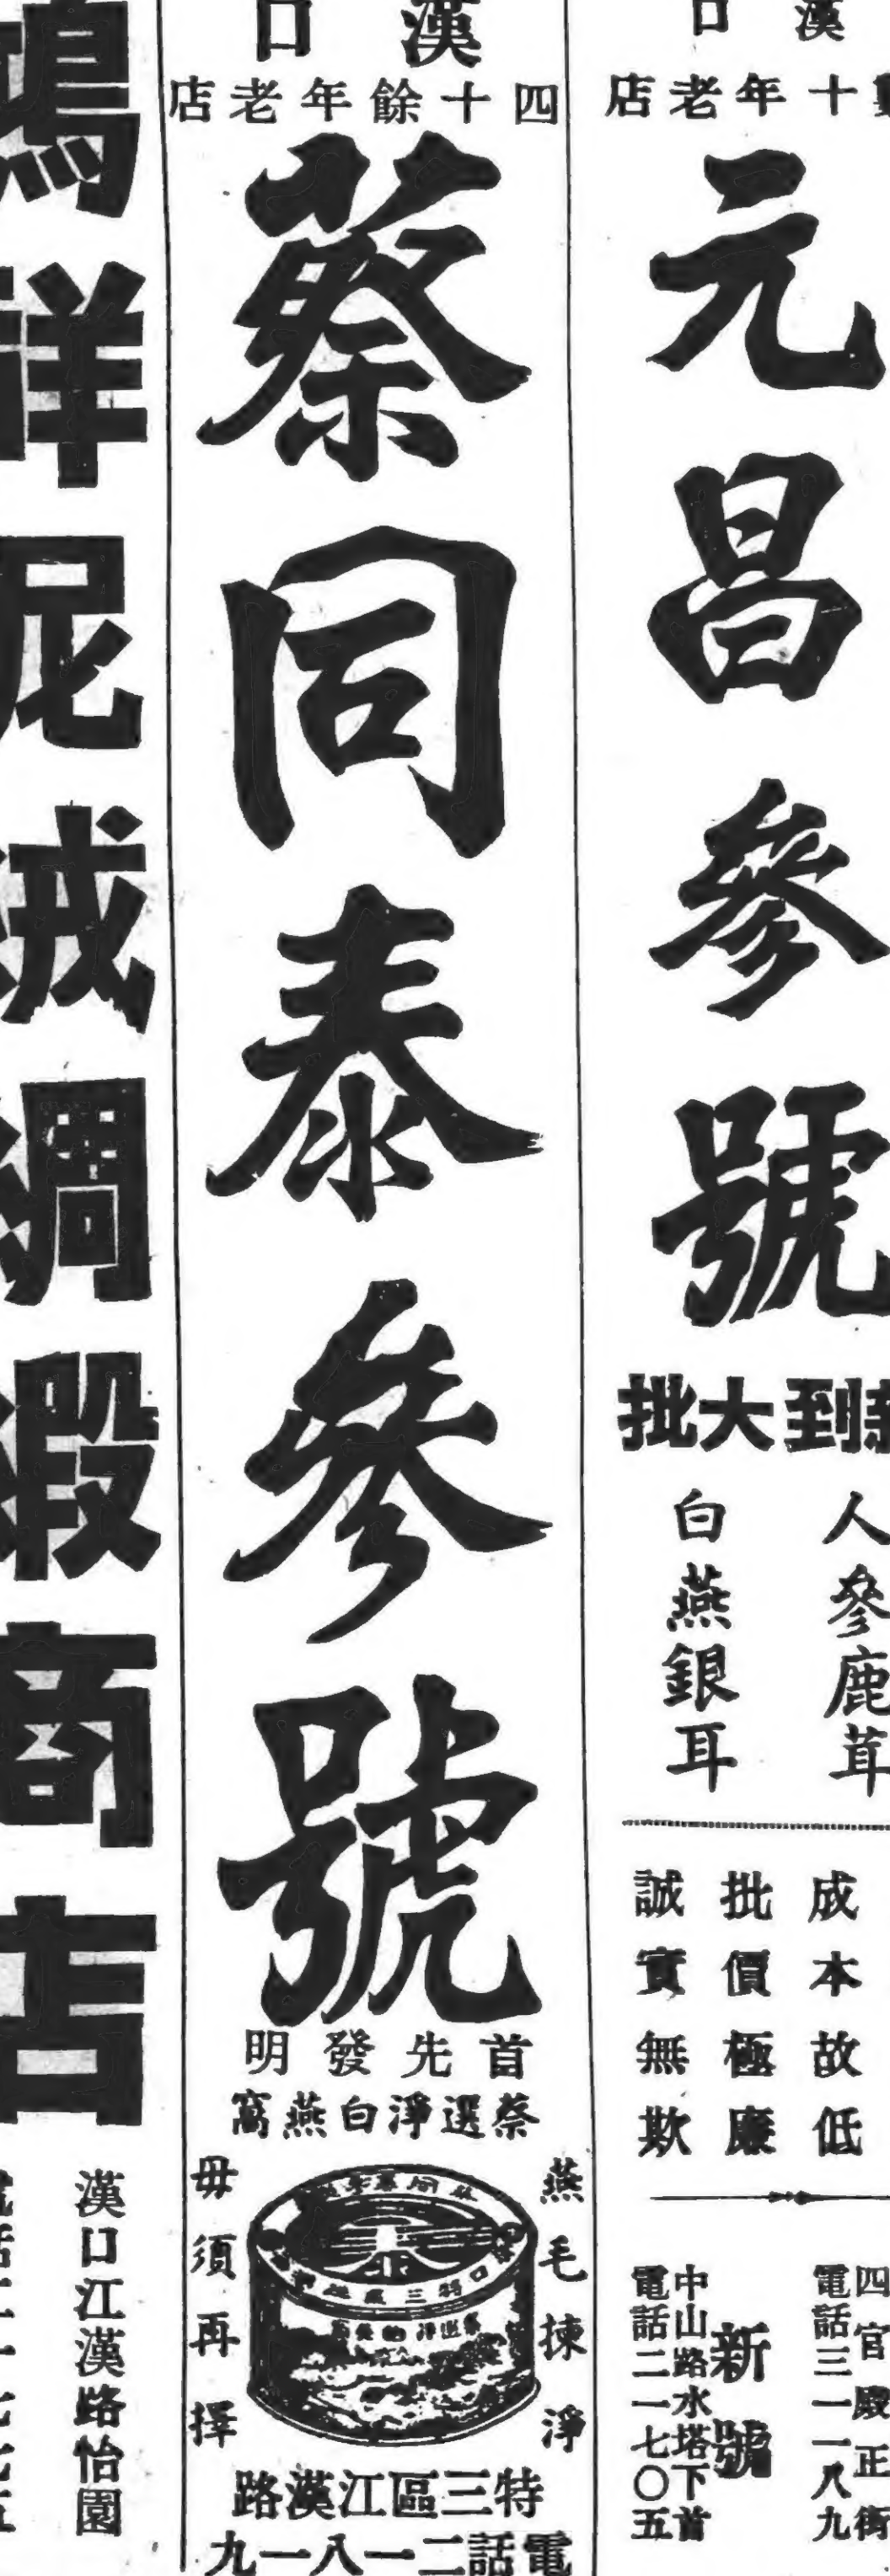 漢口
十年老店
元昌參號
到大批
人參鹿茸
白燕銀耳
成本故低
批價極廉
誠實無欺
四官殿正街
電話三一一八九
新號
中山路水塔下首
電話二一七〇五
漢口
四十餘年老店
蔡同泰參號
首先發明
蔡選淨白燕窩
燕毛揀淨
毋須再擇
特三區江漢路
電話二一八一九
鴻祥尼絨綢緞商店
漢口江漢路怡園